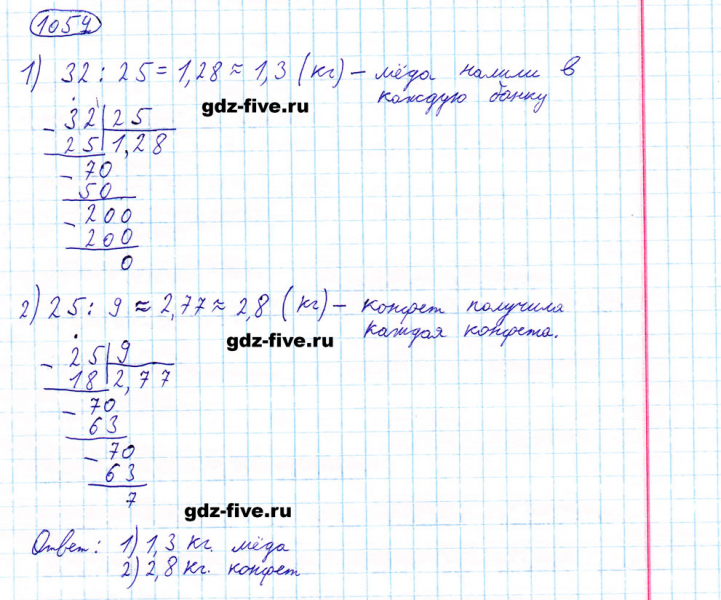 1054
1) 32 : 25 = 1,28 ≈ 1,3 (кг) – мёда налили в
каждую банку
gdz-five.ru
- 32 25
25 1,28
- 70
50
- 200
200
0
2) 25 : 9 ≈ 2,77 ≈ 2,8 (кг) – конфет получила
каждая конфета.
gdz-five.ru
- 25 9
18 2,77
- 70
63
- 70
63
7
gdz-five.ru
Ответ: 1) 1,3 кг. мёда
2) 2,8 кг. конфет